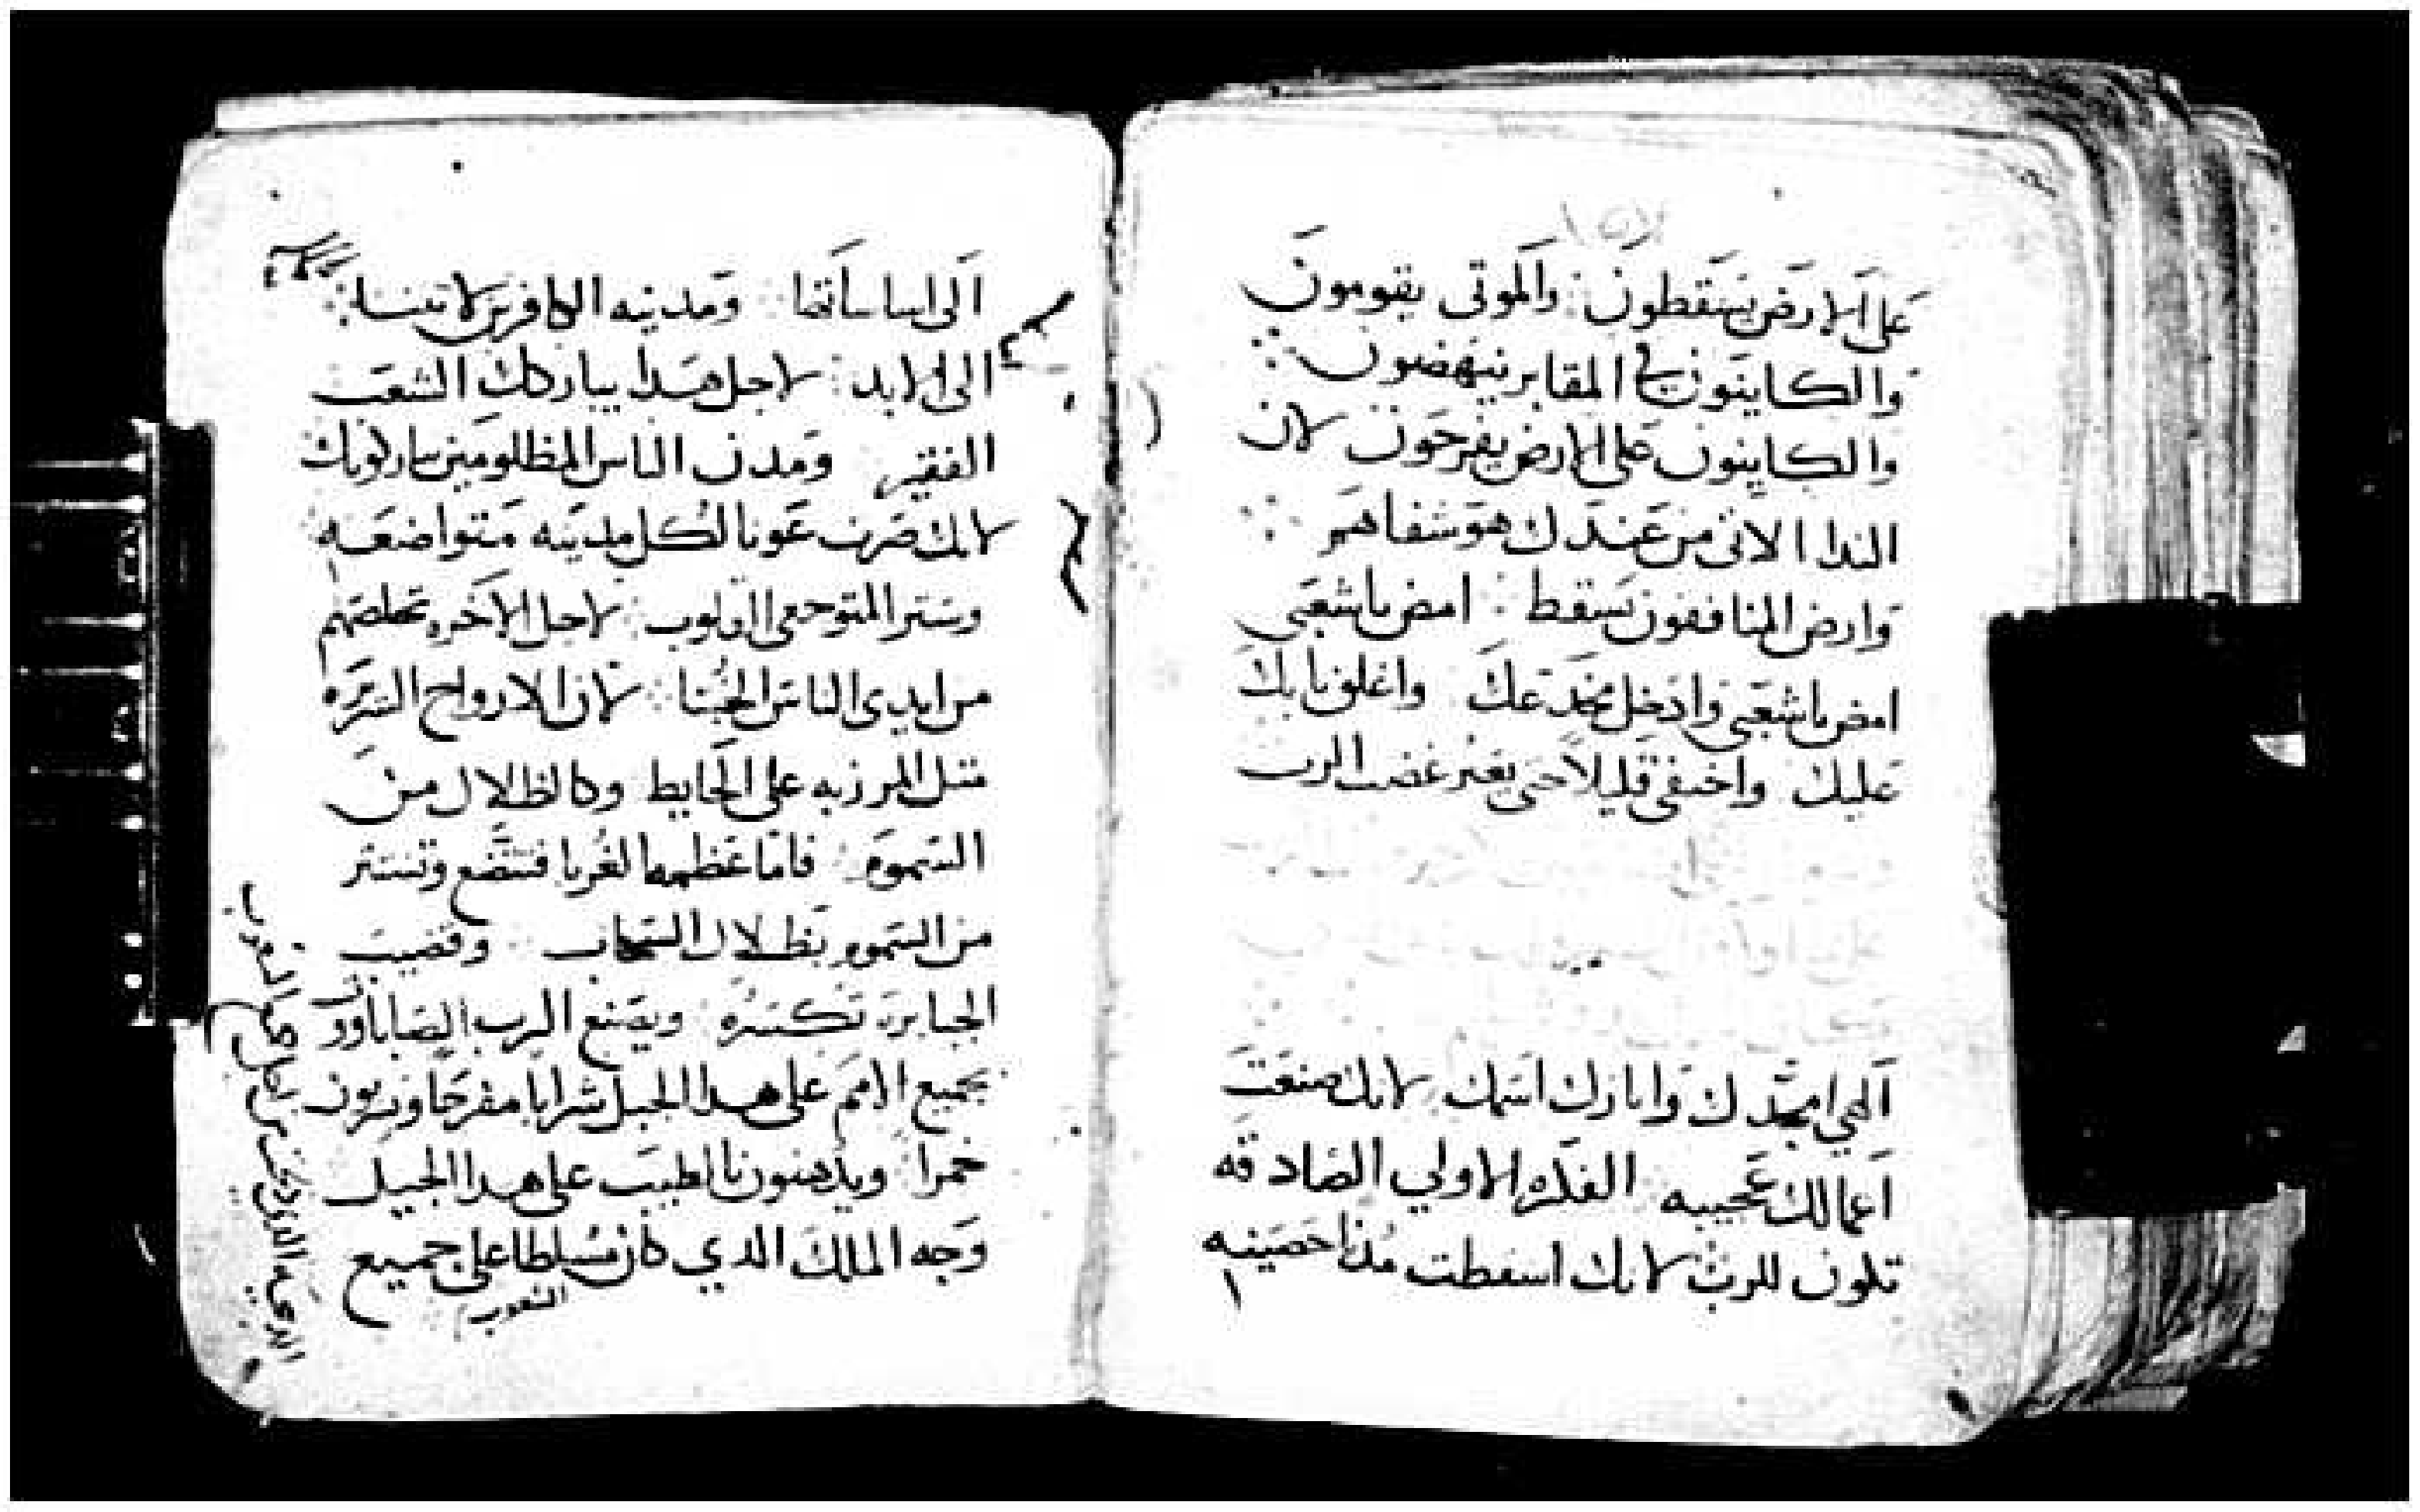 على الارض يسقطون والموتى يقومون
والكاينون في المقابر ينهضون
والكاينون على الارض يفرحون لان
الندا الاتى من عندك هو شفاهم
وارض المنافقون تسقط امض ياشعبي
امض ياشعبي وادخل مخدعك واغلق بابك
عليك واختفي قليلا حتى يعبر غضب الرب
الهي امجدك وابارك اسمك لانك صنعت
اعمالك عجيبه الفكره الاولي الصادقه
تكون للرب لانك اسقطت مدنا حصينه
الى اساساتها ومدينه الكافرين لا تبنا
الى الابد لاجل هدا يباركك الشعب
الفقير ومدن الناس المظلومين يباركونك
لانك صرت عونا لكل مدينه متواضعه
وستر المتوجعى القلوب لاجل الاخره تخلصهم
من ايدى الناس الخبثا لان الارواح الشريره
متل المرزبه على الحايط وكالظلال من
السموم فاما عظمه الغربا فتتضع وتستتر
من السموم بظلال السحاب وقضيب
الجبابره تكسره ويصنع الرب الصاباووت
بجميع الامم على هدا الجبل شرابا مفرحا ويشربون
خمرا ويدهنون بالطيب على هدا الجبل
وجه الملك الدي كان مسلطا على جميع
الشعوب